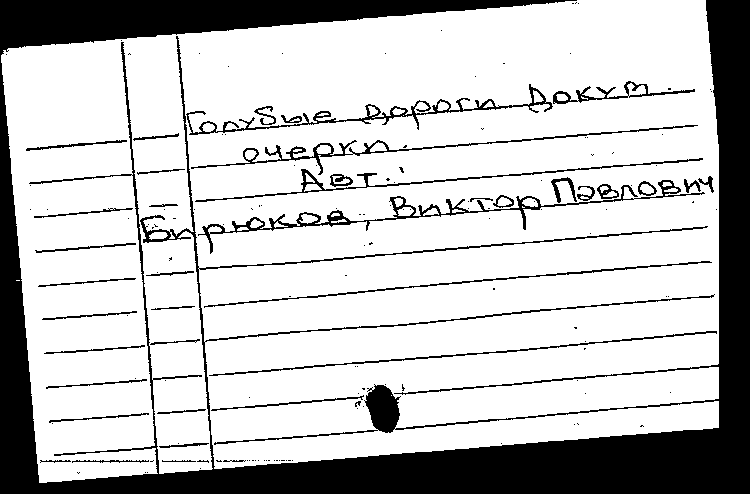 Голубые дороги Докум.
очерки.
Авт.:
Бирюков, Виктор Павлович